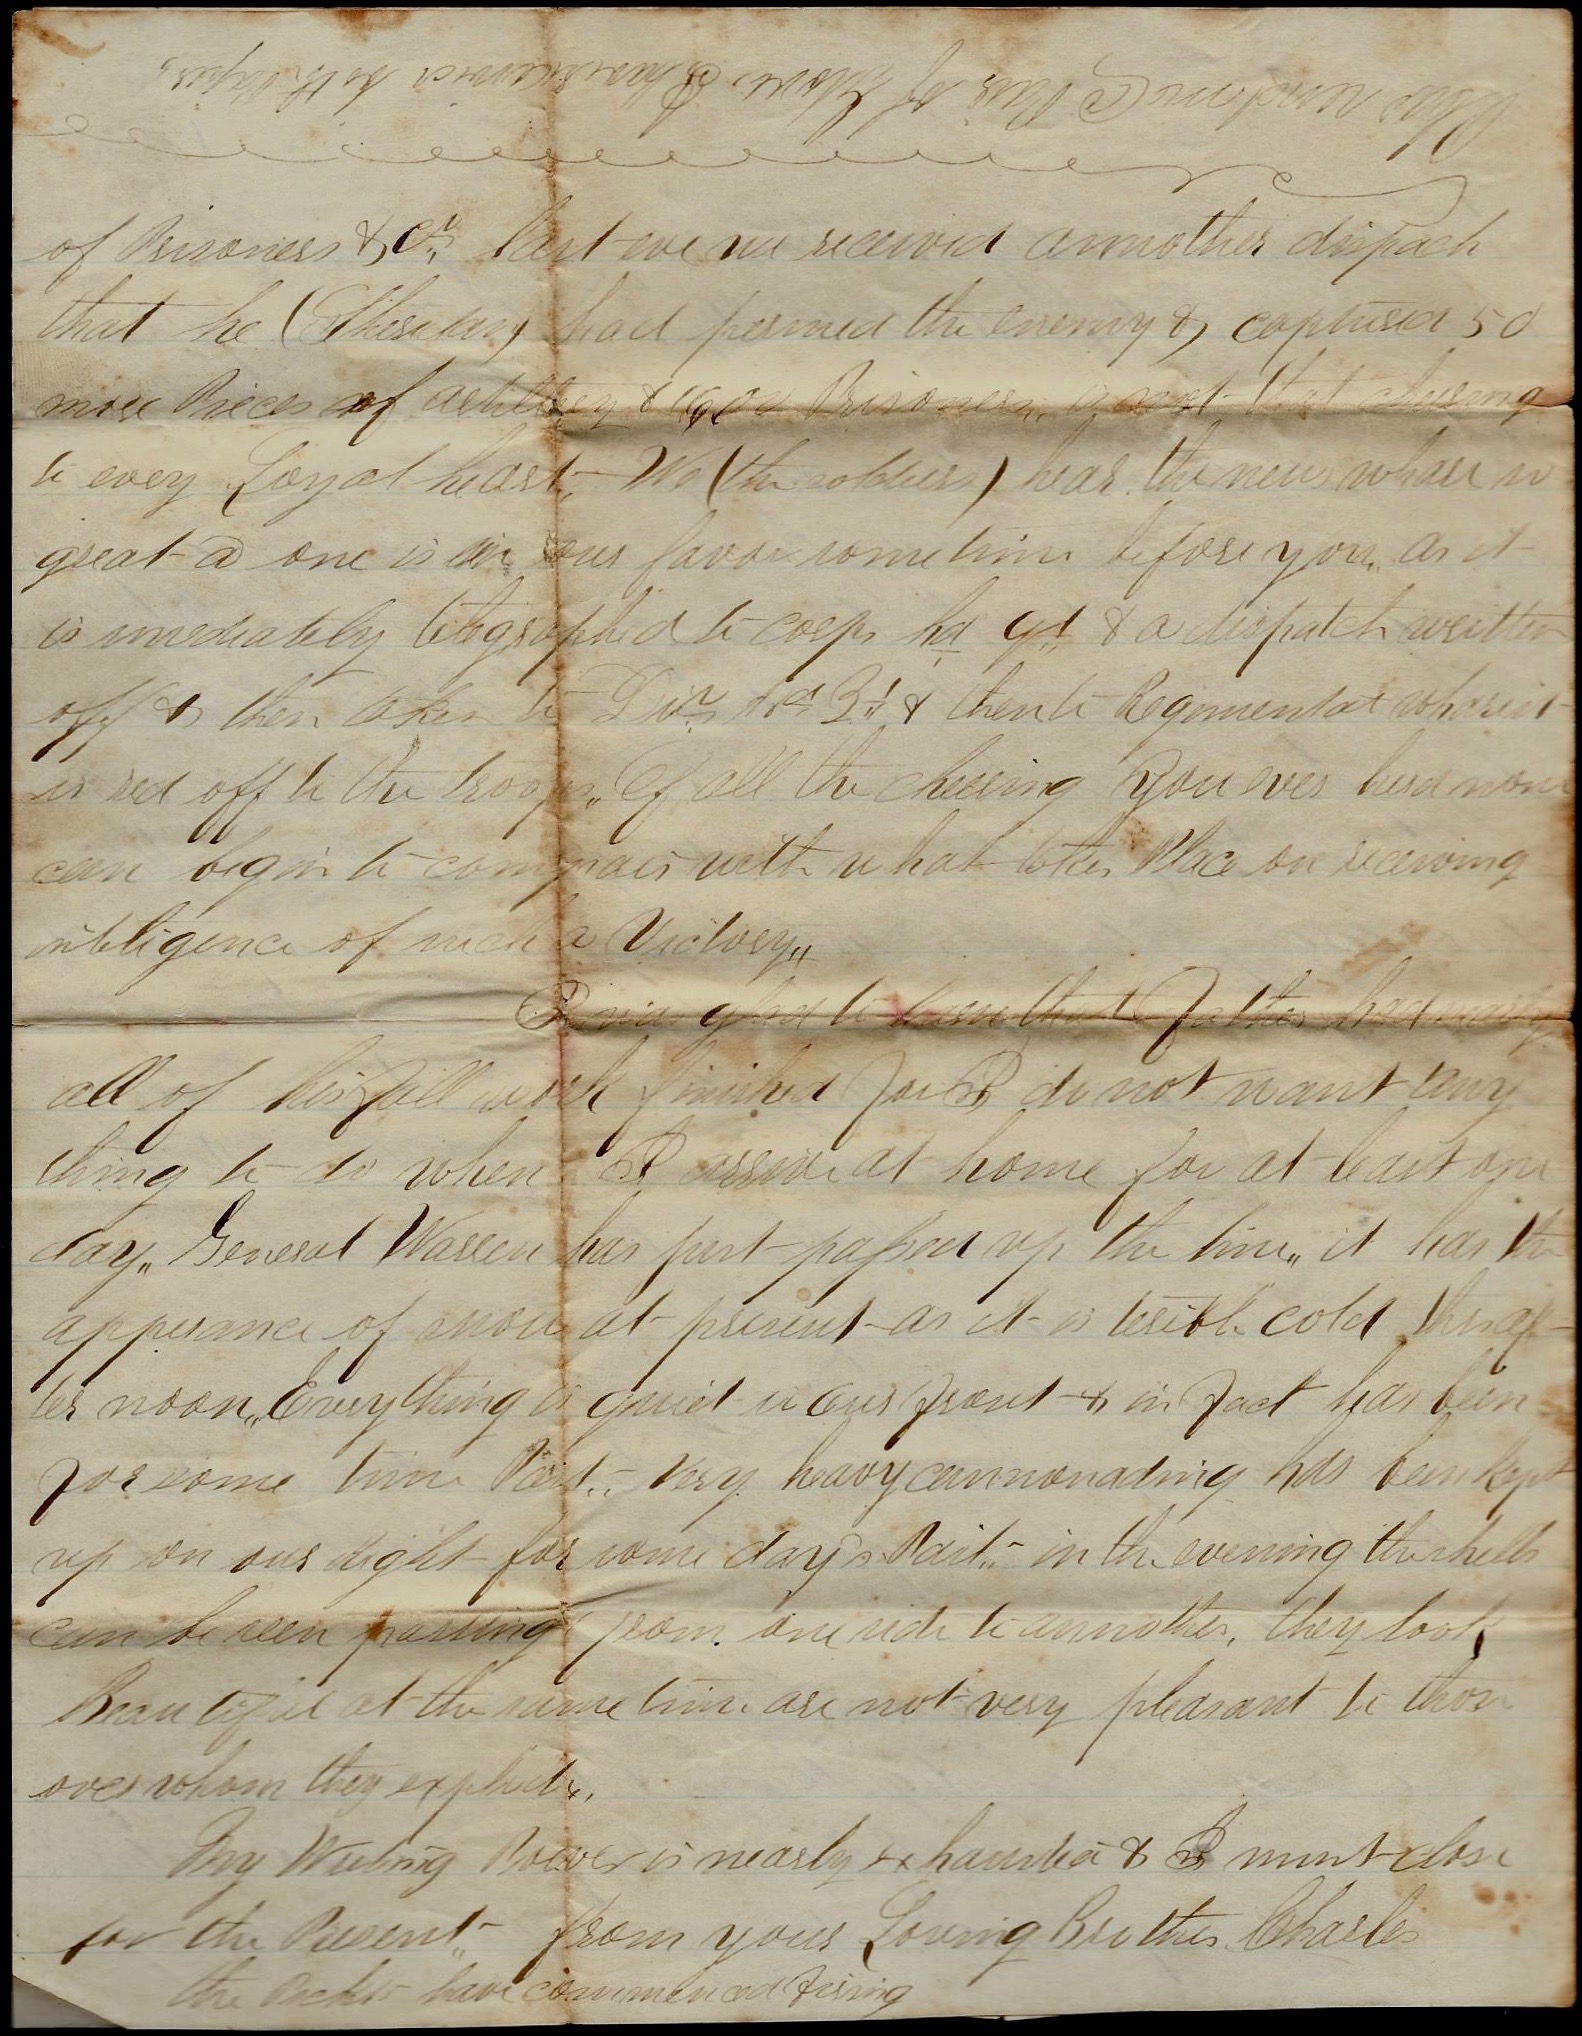 Also send me a Pair of Gloves I have received both Papers
of Prisoners &c. Last eve we received annother dispach
that he (Sheridan) had persued the enemy & captured 50
more Pieces of artillery & 1600 Prisoners,, is not that chearing
to every Loyal heart,- We (the soldiers) hear the news whare so
great a one is in our favor sometime before you,, as it
is imediately telegraphed to corps hd qts & a dispatch written
off & then taken to Divn Hd & then to Regimental whareit
is red off to the troops,, Of all the cheering you ever herd none
can begin to compair with what takes Place on receiving
inteligence of such a Victory,,
I was glad to learn that Father had nearly
all of his fall work finished for I do not want any
thing to do when I arrive at home for at least one
day,, General Warren has just passed up the line,, it has the
apperance of snow at present as it is terible cold this af-
ter noon,, Everything is quiet in our front & in fact has been
for some time Past,,- Very heavy cannonading has been kept
up on our right for some days Past,,- in the evening the shells
can be seen passing from one side to annother, they look
Beautiful at the same time are not very pleasant to those
over whom they explode,
My Writing Power is nearly exhausted & I must close
for the Present,,- from your Loving Brother Charles
the Pickets have commenced firing